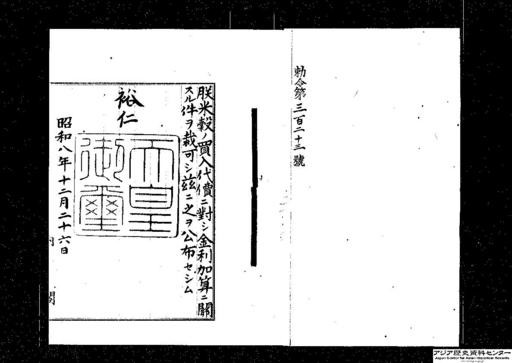 勅令第三百二十三號
朕米穀ノ買入代價ニ對シ金利加算ニ關
スル件ヲ裁可シ茲ニ之ヲ公布セシム
裕仁
天皇
御璽
昭和八年十二月二十六日
内閣
アジア歴史資料センター
Japan Center for Asian Historical Records